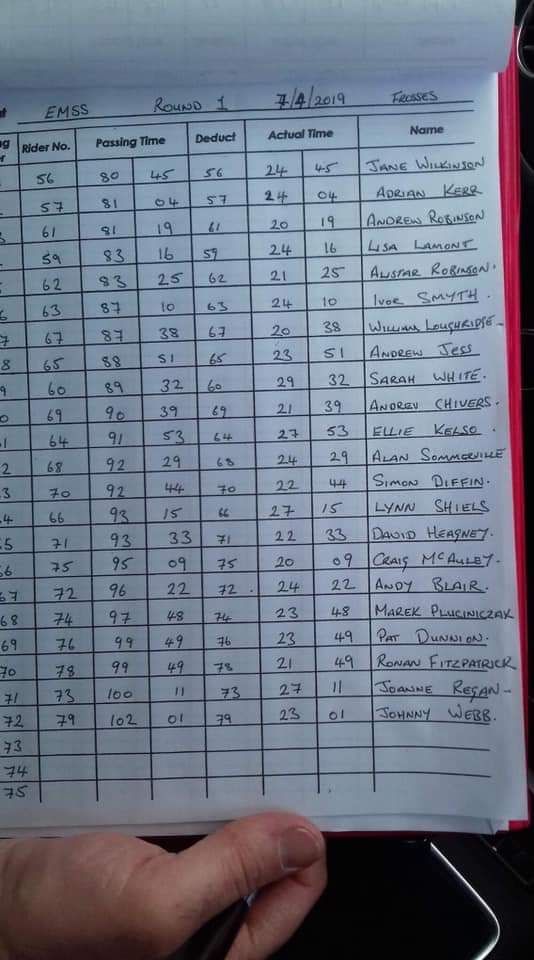 EMSS ROUND 1 7/4/2019 FROSSES
Rider No. Passing Time Deduct Actual Time Name
56 80 45 56 24 45 JANE WILKINSON
57 81 04 57 24 04 ADRIAN KERR
61 81 19 61 20 19 ANDREW ROBINSON
59 83 16 59 24 16 LISA LAMONT
62 83 25 62 21 25 ALISTAR ROBINSON.
6 63 87 10 63 24 10 IVOR SMYTH.
7 67 87 38 67 20 38 WILLIAM LOUGHRIDGE-
8 65 88 51 65 23 51 ANDREW JESS
9 60 89 32 60 29 32 SARAH WHITE.
0 69 90 39 69 21 39 ANDREW CHIVERS.
1 64 91 53 64 27 53 ELLIE KELSO.
2 68 92 29 68 24 29 ALAN SOMMERVILLE
3 70 92 44 70 22 44 SIMON DIFFIN.
4 66 93 15 66 27 15 LYNN SHIELS
5 71 93 33 71 22 33 DAVID HEAGNEY.
66 75 95 09 75 20 09 CRAIG McAULEY.
67 72 96 22 72. 24 22 ANDY BLAIR.
68 74 97 48 74 23 48 MAREK PLUCINICZAK
69 76 99 49 76 23 49 PAT DUNNION.
70 78 99 49 78 21 49 RONAN FITZPATRICK
71 73 100 11 73 27 11 JOANNE REGAN-
72 79 102 01 79 23 01 JOHNNY WEBB.
73
74
75